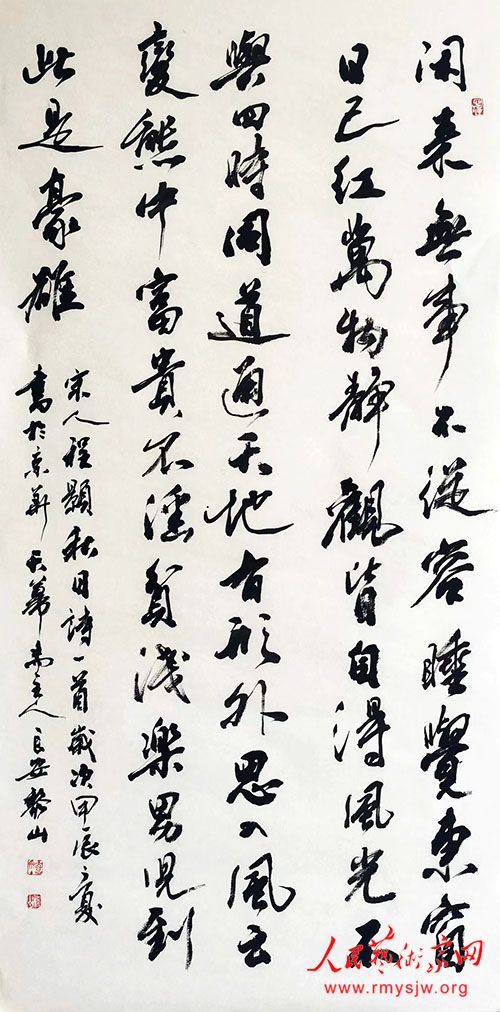 闲來無事不從容睡覺東窗
日已紅萬物靜觀皆自得風光不
與四時同道通天地有形外思入風雲
變態中富貴不淫貧賤樂男兒到
此是豪雄
宋人程顥秋日詩一首歲次甲辰之夏
書於京華天華齋主人長安山
人民藝術家网
www.rmysjw.org